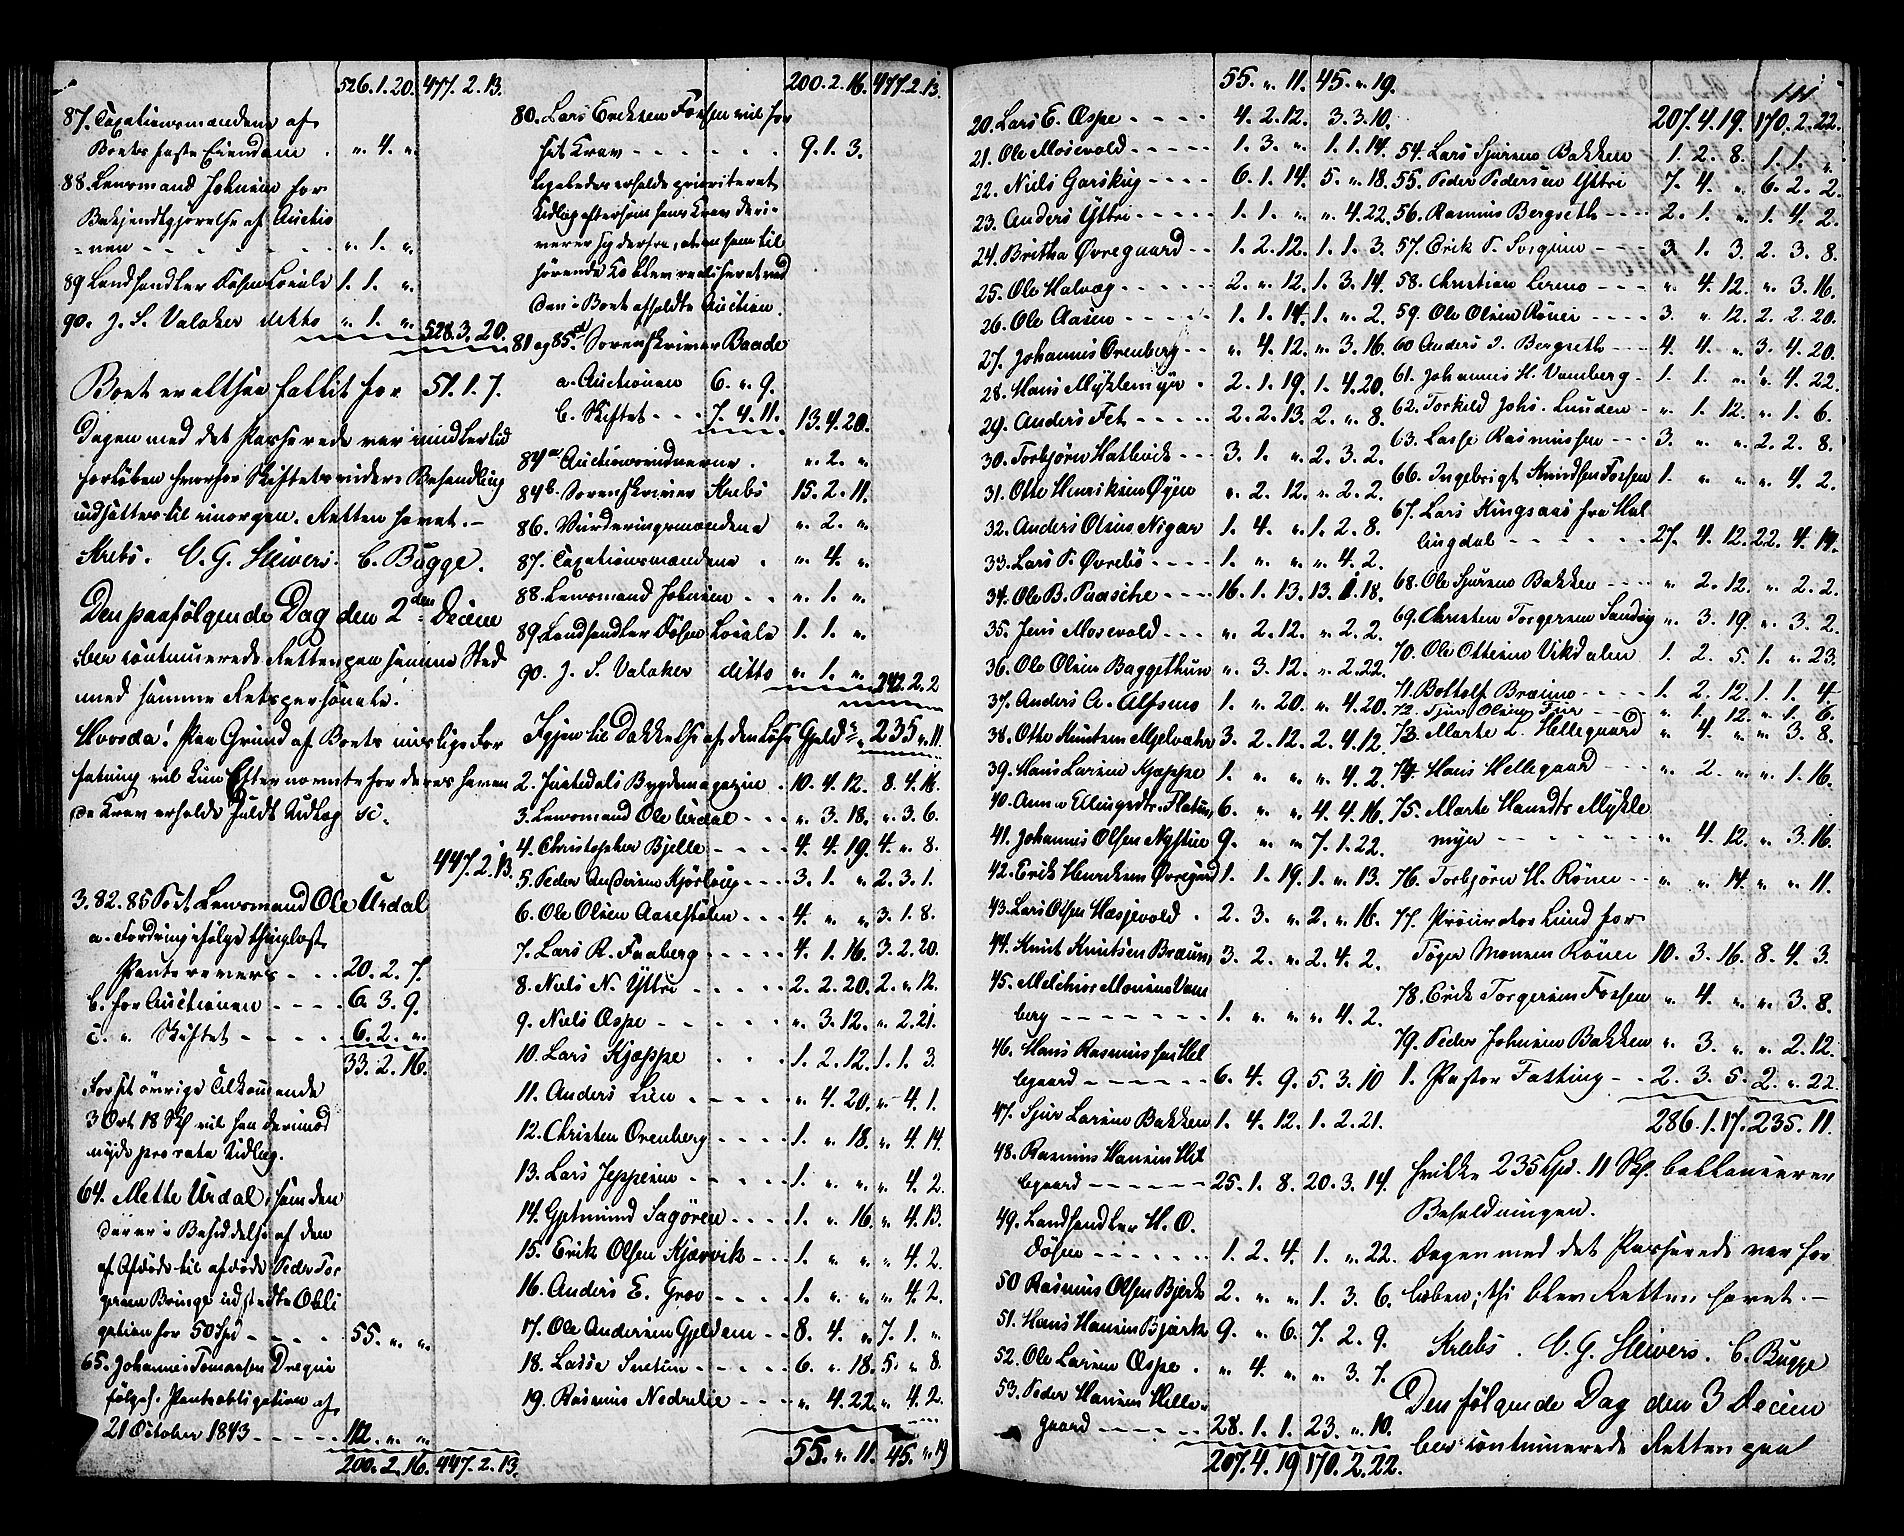 526.1.20. 477.2.13.
87. Taxationsmændene af
Boets faste Eiendom . „ 4. „
88. Lensmand Johnsen for
Bekjendtgjørelse af Auctio
=nen - - - - - „ 1. „
89 Landhandler Døsen Locale 1. 1. „
90. J. S. Valaker ditto „ 1. „ 528.3.20.
Boet er altsaa fallit for 51.1.7.
Dagen med det Passerede var imidlertid
forløben hvorfor Skiftets videre Behandling
udsattes til imorgen. Retten hævet.-
Krebs. C. G. Heivers. C. Bugge.
Den paafølgende Dag den 2den Decem
ber continuerede Retten paa samme Sted
med samme Retspersonale.
Hvorda! Paa Grund af Boets mislige For
fatning vil kun Efternævnte for deres havem
de Krav erholde fuldt Udlæg sc.
447.2.13.
3.82.85 Post. Lensmand Ole Urdal
a. Fordring ifølge thinglæst
Panterevers - - . 20. 2. 7.
b. for Auctionen - - - - 6. 3. 9.
c. „ Skiftet - - - - 6. 2. „
33. 2. 16.
For sit øvrige Tilkommende
3 Ort 18 Sk vil han derimod
nyde pro rata Udlæg.
64. Mette Urdal, som den
der er i Besiddelse af den
af Afdøde til afdøde Peder Tor
gersen Bringe udstedte Obli
gation for 50 Spd - - - - 55. „ „
65. Johannes Tomassen Dregni
følge Panteobligation af
21 October 1843 - - - - - 112. „ „
200. 2. 16. 447. 2. 13.
200. 2. 16. 477. 2. 13.
80. Lars Ericksen Fossen vil for
sit Krav - - - - - 9. 1. 3.
ligeledes erholde prioriteret
Udlæg eftersom hans Krav deri-
verer sig derfra, at en ham til
hørende Ko blev realiseret ved
den i Boet afholdte Auction.
81 og 85 Sorenskriver Baade
a. Auctionen 6. „ 9.
b. Skiftet - - - 7. 4. 11. 13. 4. 20.
84a Auctionsvidnerne . „ 2. „
84b. Sorenskriver Krebs 15. 2. 11.
86. Vurderingsmændene „ 2. „
87. Taxationsmændene . „ 4. „
88. Lensmand Johnsen . . „ 1. „
89 Landhandler Døsen Locale 1. 1. „
90. J. S. Valaker ditto „ 1. „ 242. 2. 2
Igjen til Dækkelse af den løse Gjeld 235 „ 11.
2. Justedals Bygdemagazin . 10. 4. 12. 8. 4. 16.
3. Lensmand Ole Urdal - - - „ 3. 18. „ 3. 6.
4. Christopher Bjelle - - - - 4. 4. 19. 4. „ 8.
5. Peder Andersen Kjørlaug - - - 3. 1. „ 2. 3. 1.
6. Ole Olsen Aasestølen - - - 4. „ „ 3. 1. 8.
7. Lars R. Faaberg - - - - - 4. 1. 16. 3. 2. 20.
8. Niels N. Yttri - - - - - 2. 2. 20. 2. „ 12.
9. Niels Espe - - - - - „ 3. 12. „ 2. 21.
10. Lars Kjæppe . . . 1. 2. 12. 1. 1. 3.
11. Anders Lien - - - - „ 4. 20. „ 4. 1.
12. Christen Ørenberg - - - - 1. „ 18. „ 4. 14.
13. Lars Jeppesen - - - - 1. „ „ „ 4. 2.
14. Gjetmund Sagøren - - - 1. „ 16. „ 4. 13.
15. Erik Olsen Kjærvik - - - 1. „ „ „ 4. 2.
16. Anders E. Grov - - - - 1. „ „ „ 4. 2.
17. Ole Andersen Gjeldem - - 8. 4. „ 7. 1. „
18. Lasse Snetun - - - - - 6. „ 18. 5. „ 8.
19. Rasmus Nedrelie - - - „ 4. 22. „ 4. 2.
55. „ 11. 45. „ 19
55. „ 11. 45. „ 19.
20. Lars E. Espe - - - - 4. 2. 12. 3. 3. 10.
21. Ole Mosevold - - - - - 1. 3. „ 1. 1. 14.
22. Niels Garskug - - - - 6. 1. 14. 5. „ 18.
23. Anders Yttri - - - - - 1. 1. „ „ 4. 22.
24. Britha Øvregaard - - 1. 2. 12. 1. 1. 3.
25. Ole Halvæg - - - - - 2. „ 12. 1. 3. 14.
26. Ole Aasen - - - - - 1. 1. 14. 1. „ 2.
27. Johannes Ørenberg - - „ 4. 12. „ 3. 16.
28. Hans Myklemyr . 2. 1. 19. 1. 4. 20.
29. Anders Fet - - - - 2. 2. 13. 2. „ 8.
30. Torbjørn Hatlevik - - - 3. 1. „ 2. 3. 2.
31. Otte Henriksen Øyen „ 2. 12. „ 2. 2.
32. Anders Olsen Nigar 1. 4. „ 1. 2. 8.
33. Lars P. Øvrebø - - - - 1. „ „ „ 4. 2.
34. Ole B. Paasche - - - - 16. 1. 13. 13. 1. 18.
35. Jens Mosevold - - - „ 2. 12. „ 2. 2.
36. Ole Olsen Baggethun „ 3. 12. „ 2. 22.
37. Anders A. Alfsmo 1. „ 20. „ 4. 20.
38. Otte Knutsen Mjelvær 3. 2. 12. 2. 4. 12.
39. Hans Larsen Kjæppe 1. „ „ „ 4. 2.
40. Anna Ellingsdtr. Flatun 6. „ „ 4. 4. 16.
41. Johannes Olsen Nystuen 9. „ „ 7. 1. 22.
42. Erik Henriksen Øvregard 1. 1. 19. 1. „ 13.
43. Lars Olsen Hasjevold . 2. 3. „ 2. „ 16.
44. Knut Knutsen Bræum 3. 2. „ 2. 4. 2.
45. Melchior Monsen Vam
berg - - - - - - - 1. „ „ „ 4. 2.
46. Hans Rasmussen Hel
legaard - - - - - - 6. 4. 9. 5. 3. 10
47. Sjur Larsen Bakken 1. 4. 12. 1. 2. 21.
48. Rasmus Hansen Hel
legaard - - - - - - 25. 1. 8. 20. 3. 14.
49. Landhandler H. O.
Døsen - - - - - - 1. 2. 4. 1. „ 22.
50 Rasmus Olsen Bjørk 2. „ „ 1. 3. 6.
51. Hans Hansen Bjørk 9. „ 6. 7. 2. 9.
52. Ole Larsen Espe . „ 4. „ „ 3. 7.
53. Peder Hansen Helle-
gaard - - - - - - 28. 1. 1. 23. „ 10.
207. 4. 19 170. 2. 22.
111
207. 4. 19. 170. 2. 22.
54. Lars Sjursen Bakken 1. 2. 8. 1. 1. „
55. Peder Pedersen Yttri 7. 4. „ 6. 2. 2.
56. Rasmus Bergseth - - - - 2. 1. „ 1. 4. 2.
57. Erik T. - - - - 3. 1. 3. 2. 3. 8.
58. Christian Lermo - - - „ 4. 12. „ 3. 16.
59. Ole Olsen Rønei - - - - 3. „ 12. 2. 2. 20.
60 Anders I. Bergseth - - 4. 4. „ 3. 4. 20.
61. Johannes H. Vamberg - 1. 1. „ „ 4. 22.
62. Torkild Johs. Lunden - „ 1. 12. „ 1. 6.
63. Lasse Rasmussen - - - 3. „ „ 2. 2. 8.
66. Ingebrigt Knudsen Fossen 1. „ „ „ 4. 2.
67. Lars Kingsaas fra Hal
lingdal - - - - - - 27. 4. 12. 22. 4. 14.
68. Ole Sjursen Bakken - - - - „ 2. 12. „ 2. 2.
69. Christen Torgersen Sandvig „ 3. 19. „ 3. 2.
70. Ole Ottesen Vikdalen 1. 2. 5. 1. „ 23.
71. Bottolf Bræmo - - - - 1. 2. 12. 1. 1. 4
72. Sjur Olsen - - - - „ 1. 12. „ 1. 6.
73. Marte L. Hellegaard „ 4. „ „ 3. 8.
74. Hans Hellegaard - - - „ 2. „ „ 1. 16.
75. Marte Hansdtr Mykle
myr - - - - - - - „ 4. 12. „ 3. 16.
76. Torbjørn H. Rønei - - „ „ 14. „ „ 11.
77. Procurator Lund for
Tøger Monsen Rønei 10. 3. 16. 8. 4. 3.
78. Erik Torgersen Fossen „ 4. „ „ 3. 8.
79. Peder Johnsen Bakken „ 3. „ „ 2. 12.
1. Pastor Fasting - - - 2. 3. 5. 2. „ 22.
286. 1. 17. 235. 11.
hvilke 235 Spd. 11 Sk. ballancerer
Beholdningen.
Dagen med det Passerede var for
løben; thi blev Retten hævet. -
Krebs. C. G. Heivers. C. Bugge
Den følgende Dag den 3 Decem
ber continuerede Retten paa